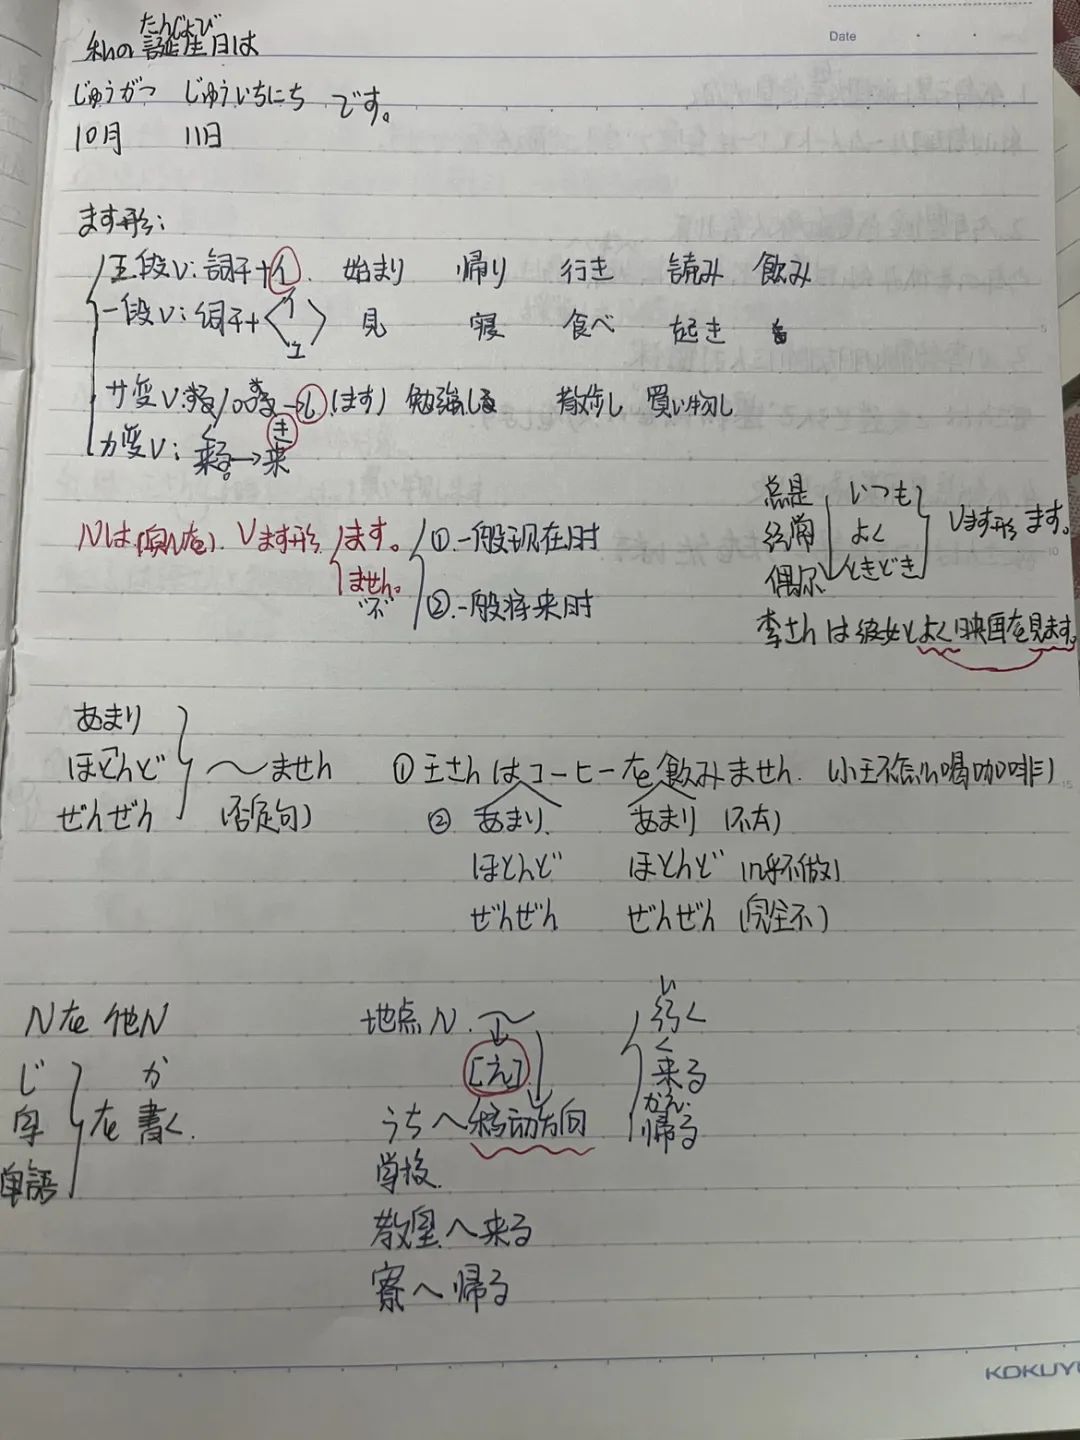 たんじょび
私の誕生日は
Date
じゅうがつ じゅういちにち です。
10月 11日
ます形:
五段V:詞干+イ. 始まり 帰り 行き 読み 飲み
一段V:詞干+〈イ エ〉 見 寝 食べ 起き
サ変V:する/〇〇する→し(ます) 勉強し 散歩し 買い物し
カ変V:来る→来
く き
总是 いつも
经常 よく
偶尔 ときどき
Vます形 ます。
Nは(NをVます形 ます。
ません。
"不"
①.一般现在时
②.一般将来时
李さんは彼女とよく映画を見ます。
あまり
ほとんど 〜ません
ぜんぜん (否定句)
①王さんはコーヒーを飲みません. (小王不怎么喝咖啡)
② あまり. あまり (不太)
ほとんど ほとんど (几乎不做)
ぜんぜん ぜんぜん (完全不)
Nを他N
じ か
字 を書く.
単語
地点N. 〜
[え]
うちへ移动方向
学校.
教室へ来る
寮へ帰る
い
行く
く
来る
かえ.
帰る
KOKUYO